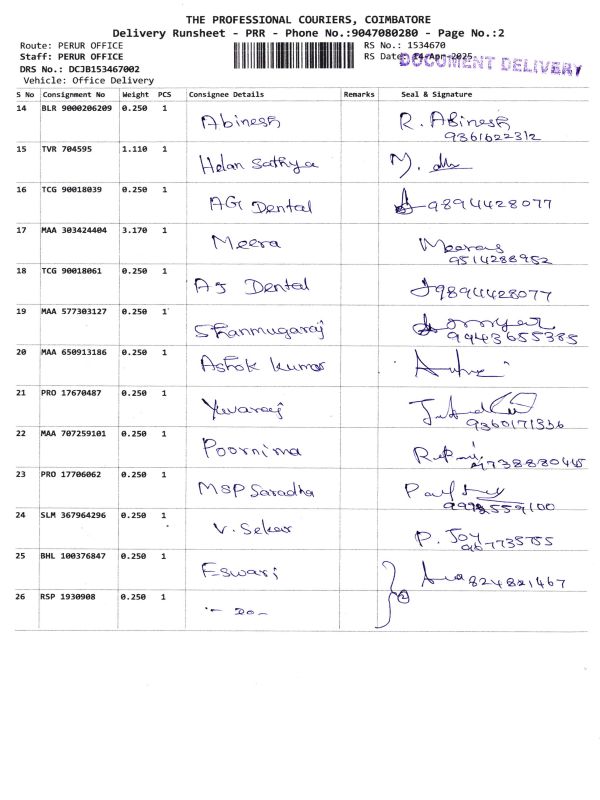 THE PROFESSIONAL COURIERS, COIMBATORE
Delivery Runsheet - PRR - Phone No.:9047080280 - Page No.:2
Route: PERUR OFFICE
RS No.: 1534670
Staff: PERUR OFFICE
RS Date: 14-Apr-2025
DOCUMENT DELIVERY
DRS No.: DCJB153467002
Vehicle: Office Delivery
S No Consignment No Weight PCS Consignee Details Remarks Seal & Signature
14 BLR 9000206209 0.250 1 Abinesh R. Abinesh
9361622312
15 TVR 704595 1.110 1 Helan Sathya M.
16 TCG 90018039 0.250 1 AG Dental 9894428077
17 MAA 303424404 3.170 1 Meera Meera
9514288952
18 TCG 90018061 0.250 1 AJ Dental 9894428077
19 MAA 577303127 0.250 1 Shanmugaraj
9943655385
20 MAA 650913186 0.250 1 Ashok kumar
21 PRO 17670487 0.250 1 Yuvaraj
9360171336
22 MAA 707259101 0.250 1 Poornima
23 PRO 17706062 0.250 1 MSP Saradha
24 SLM 367964296 0.250 1 V. Sekar P. Joy
25 BHL 100376847 0.250 1 Eswari 824821467
26 RSP 1930908 0.250 1 - Do - 2